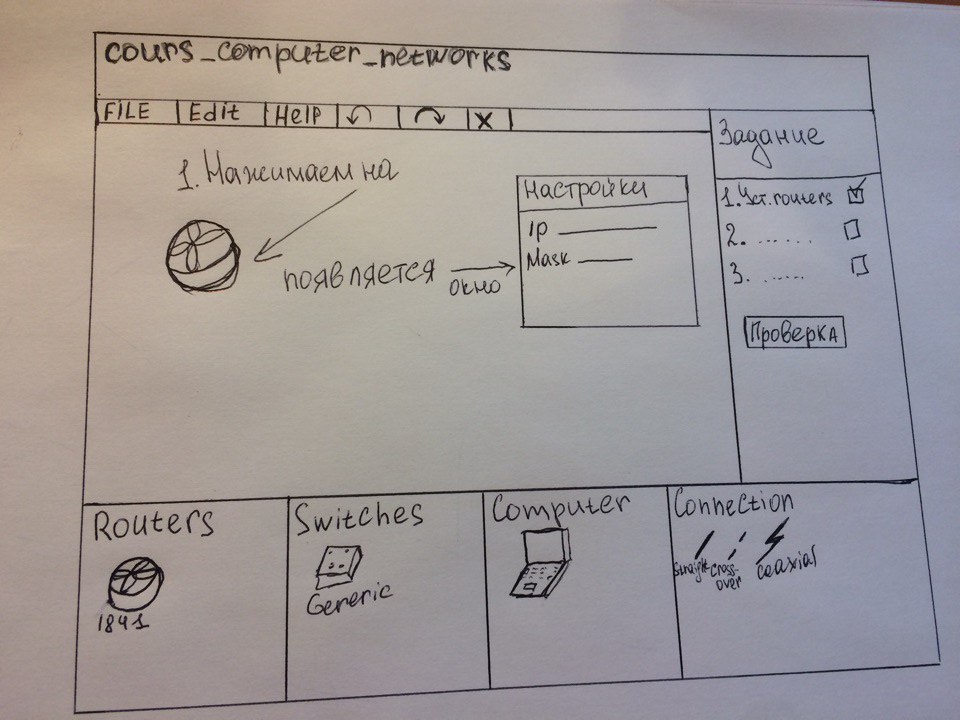 cours_computer_networks
FILE Edit Help X
Задание
1. Нажимаем на
Настройки
Ip
Mask
появляется
окно
1. Уст. routers
2. ......
3. ......
Проверка
Routers
1841
Switches
Generic
Computer
Connection
Straight
Cross-
over
Coaxial